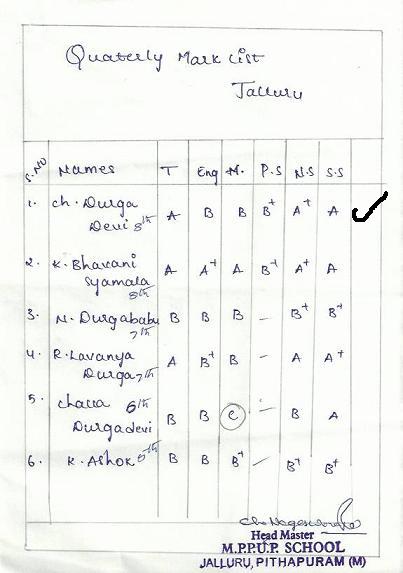 Quaterly Mark List
Jalluru
S.NO Names T Eng M. P.S N.S S.S
1. Ch. Durga
Devi 8th A B B B+ A+ A
2. K. Bhavani
Syamala
8th A A+ A B+ A+ A
3. N. Durgababu
7th B B B - B+ B+
4. R. Lavanya
Durga 7th A B+ B - A A+
5. Challa 6th
Durgadevi B B C - B A
6. K. Ashok 5th B B B+ - B+ B+
Head Master
M.P.P.U.P. SCHOOL
JALLURU, PITHAPURAM (M)